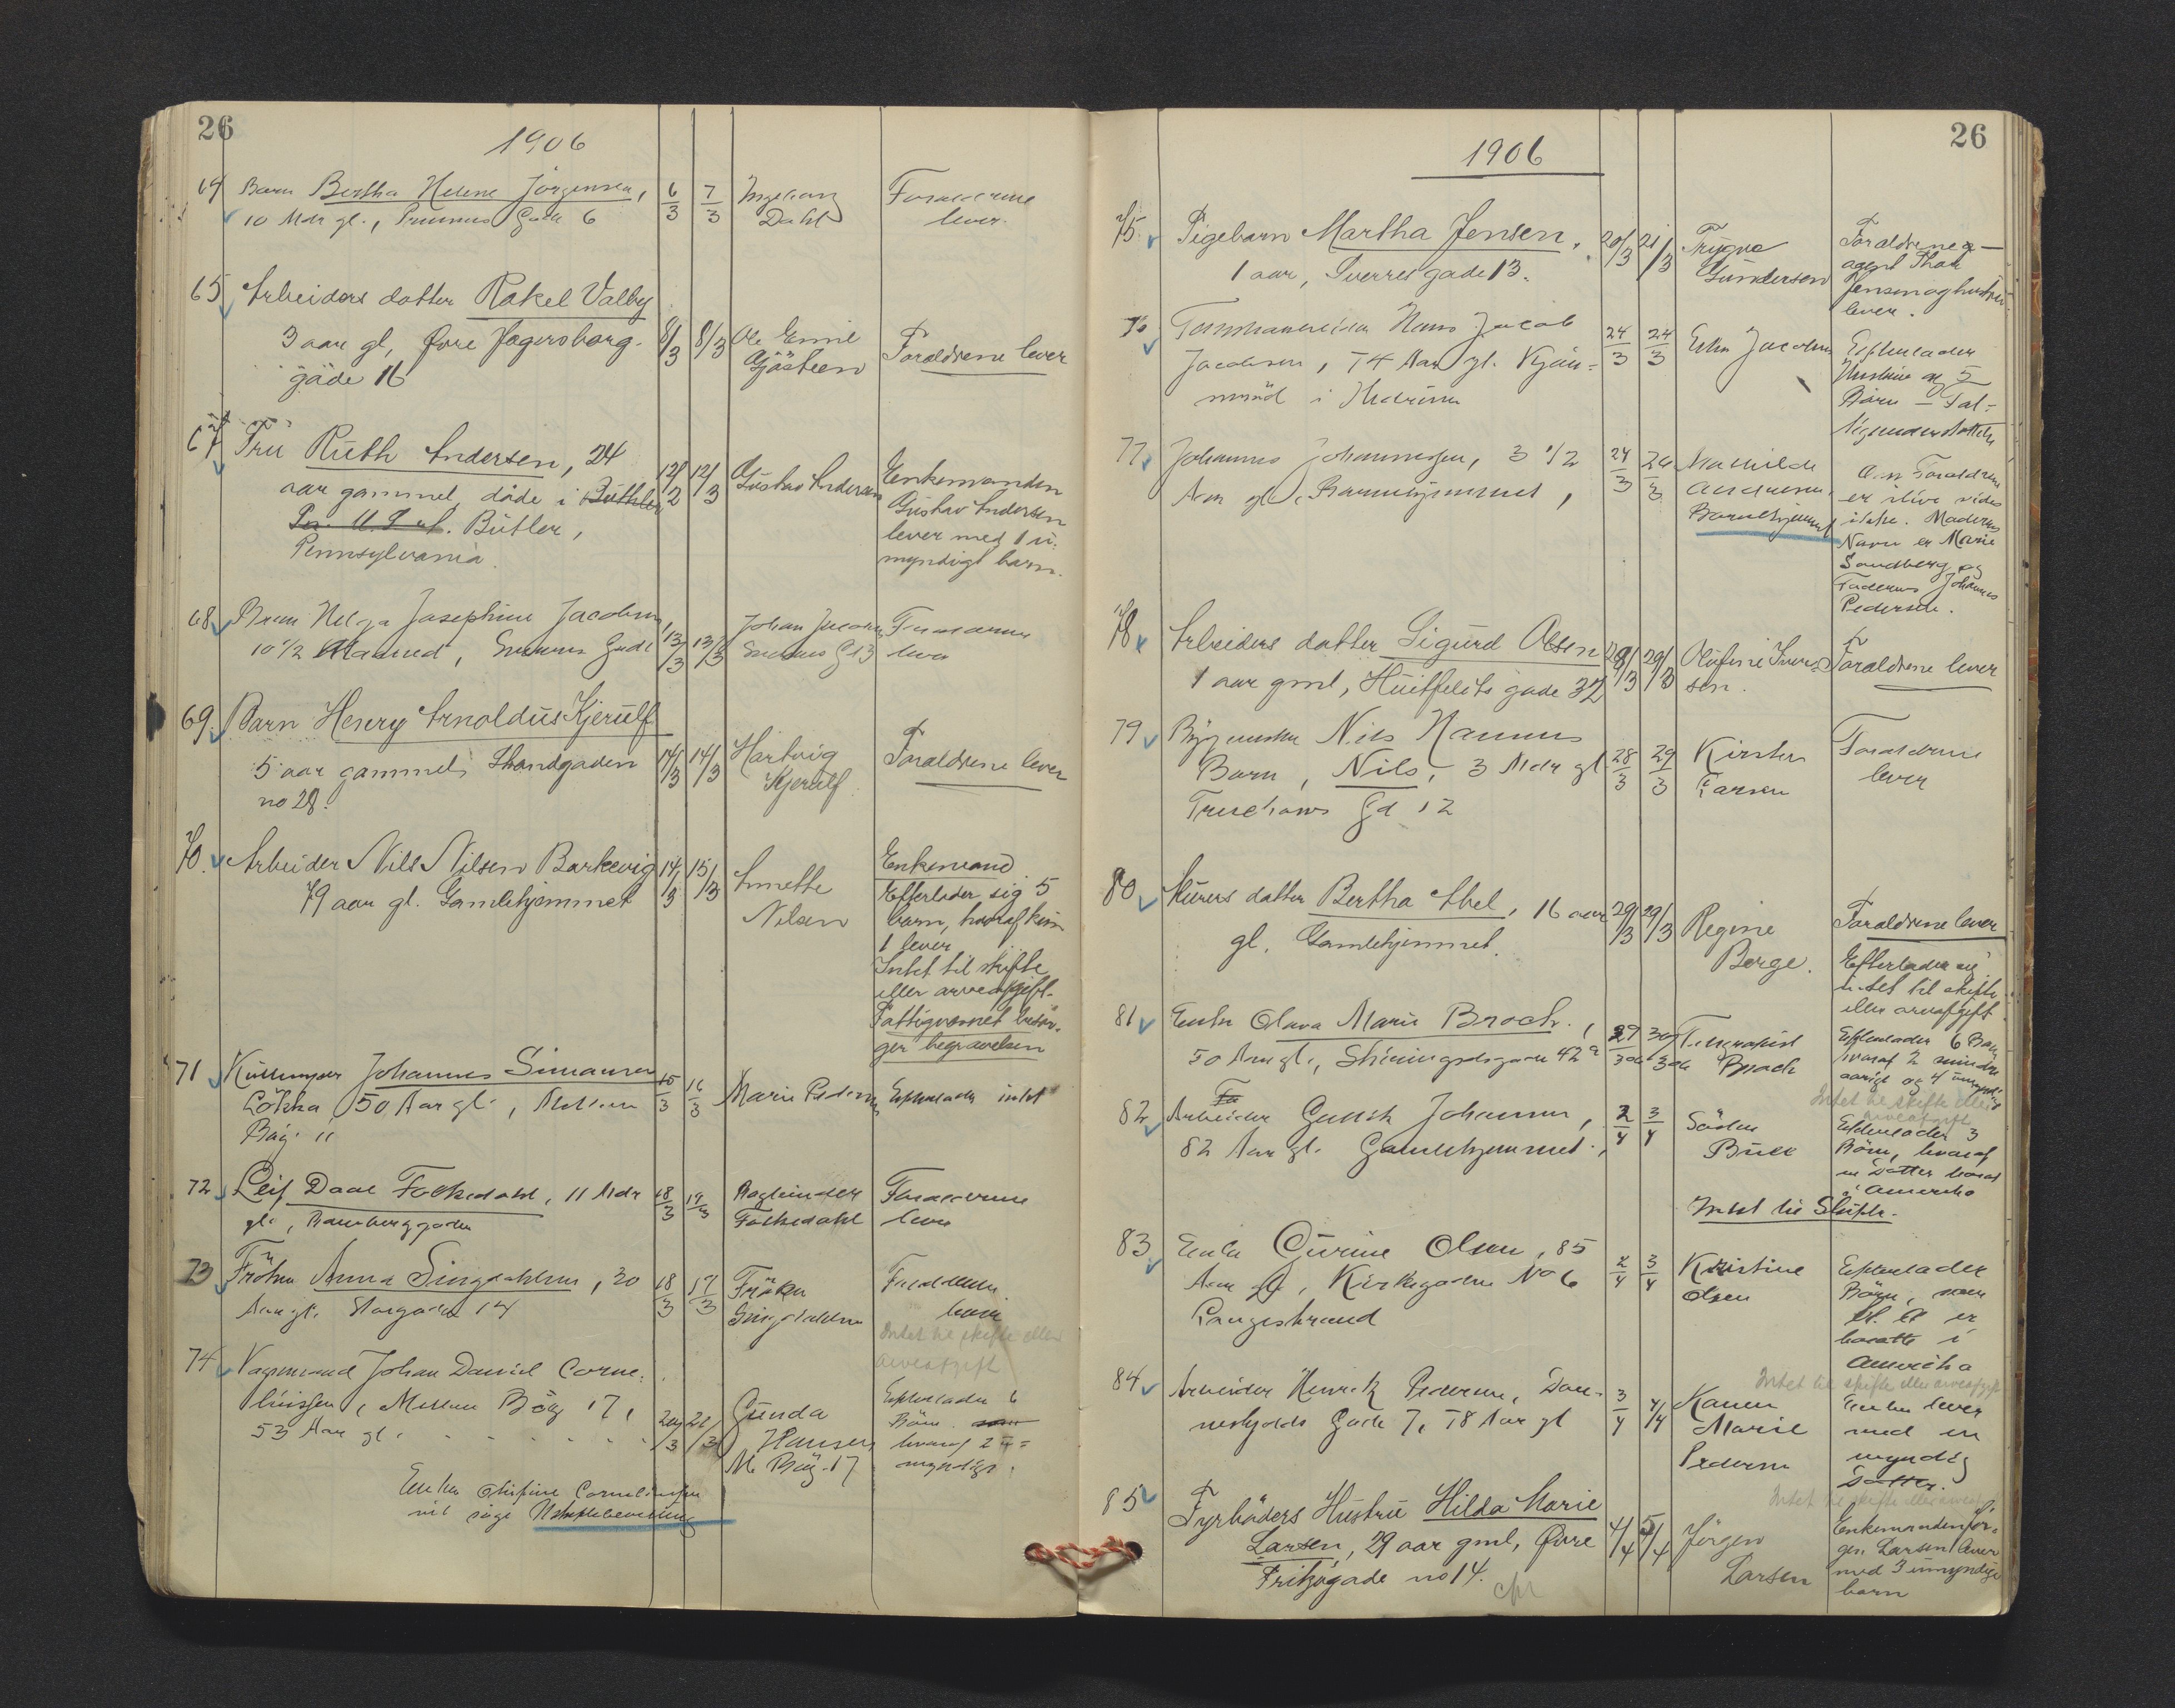 26
1906
64 Barn Bertha Helene Jörgensen, 6/3 7/3 Ingeborg Forældrene
10 Mdr gl., Gade 6 Dahl lever.
65 Arbeiders datter Rakel Valby
3 aar gl, Øvre Jegersborg- 8/3 8/3 Ole Emil Forældrene lever
gade 16 Gjösteen
67 Fru Ruth Andersen, 24
aar gammel, döde i 12/2 12/3 Gustav Andersen Enkemanden
Butler, Gustav Andersen
Pennsylvania. lever med 1 u-
myndigt barn.
68 Barn Helga Josephine Jacobsen, 13/3 13/3 Johan Jacobsen Forældrene
10 1/2 Maaned, Gade lever
69. Barn Henry Arnoldus Kjerulf
5 aar gammel, Strandgaden 14/3 14/3 Hartvig Forældrene lever
no 28. Kjerulf
70. Arbeider Nils Nilsen Barkevig 14/3 15/3 Annette Enkemand
79 aar gl. Gamlehjemmet Nilsen Efterlader sig 5
barn, hvoraf kun
1 lever
Intet til skifte
eller arveafgift.
Fattigvæsnet besör-
ger begravelsen
71 Johannes Simonsen 15/3 16/3 Marie Pedersen Efterlader intet
Lökka, 50 Aar gl., Mellem
Bög. 11
72 Leif Daae Folkedahl, 11 Mdr 18/3 19/3 Bogbinder Forældrene
gl., Folkedahl lever
73 Fröken Anna Singdahlsen, 30 18/3 19/3 Fröken Forældrene
Aar gl. Storgaden 14 Singdahlsen lever
Intet til skifte eller
arveafgift
74 Vognmand Johan Daniel Corne-
liussen, Mellem Bög 17, 20/3 21/3 Gunda Efterlader 6
53 Aar gl. Hansen Börn
M. Bög. 17 hvoraf 2 u-
myndige.
Enken Corneliussen
vil söge Uskiftebevilling
26
1906
75. Pigebarn Martha Jensen, 20/3 21/3 Trygve Forældrene -
1 aar, Sverres gade 13. Gundersen agent Thor
Jensen og hustru
lever.
76 Hans Jacob 24/3 24/3 Jacobsen Efterlader
Jacobsen, 74 Aar gl. Hustru og 5
i Hedrum Börn - Fat-
tigunderstöttelse
77. Johannes Johannessen, 3 1/2 24/3 26/3 Mathilde Om Forældrene
Aar gl. Barnehjemmet, Andersen, er ilive vides
Barnehjemmet ikke. Moderens
Navn er Marie
Sandberg og
Faderens Johannes
Pedersen.
78. Arbeiders datter Sigurd Olsen 28/3 29/3 Olufine Iver- Forældrene lever
1 aar gml, Huitfelts gade 32 sen.
79 Bygmester Nils Hannus
Barn, Nils, 3 Mdr gl 28/3 29/3 Kirsten Forældrene
Gd 12 Larsen lever
80 Murers datter Bertha Abel, 16 aar 29/3 29/3 Regine Forældrene lever
gl. Gamlehjemmet. Berge. Efterlader sig
intet til skifte
eller arveafgift
81 Enke Olava Marie Broch, 29/3 30/3 Telegrafist Efterlader 6 Börn
50 Aar gl., 42a Broch hvoraf 2 mindre
aarige og 4 umyndige
Intet til skifte eller
arveafgift
82 Arbeider Johansen, 2/4 3/4 Efterlader 3
82 Aar gl. Gamlehjemmet. Bull Börn, hvoraf
en Datter bosat
i Amerika
Intet til Skifte.
83 Enke Gurine Olsen, 85 2/4 3/4 Kristine Efterlader
Aar gl, Kirkegaden No 6 Olsen Börn, som
Langestrand er
bosatte i
Amerika
Intet til skifte eller arveafgift
84 Arbeider Henrik Pedersen, Dan- 3/4 4/4 Karen Enken lever
neskjolds Gade 7, 58 Aar gl Marie med en
Pedersen myndig
Datter.
Intet til skifte eller arveafgift
85 Fyrböders Hustru Hilda Marie Enkemanden Jör-
Larsen, 29 aar gml, Øvre 4/4 5/4 Jörgen gen Larsen lever
Fritzögade no 14. Larsen med 3 umyndige
barn